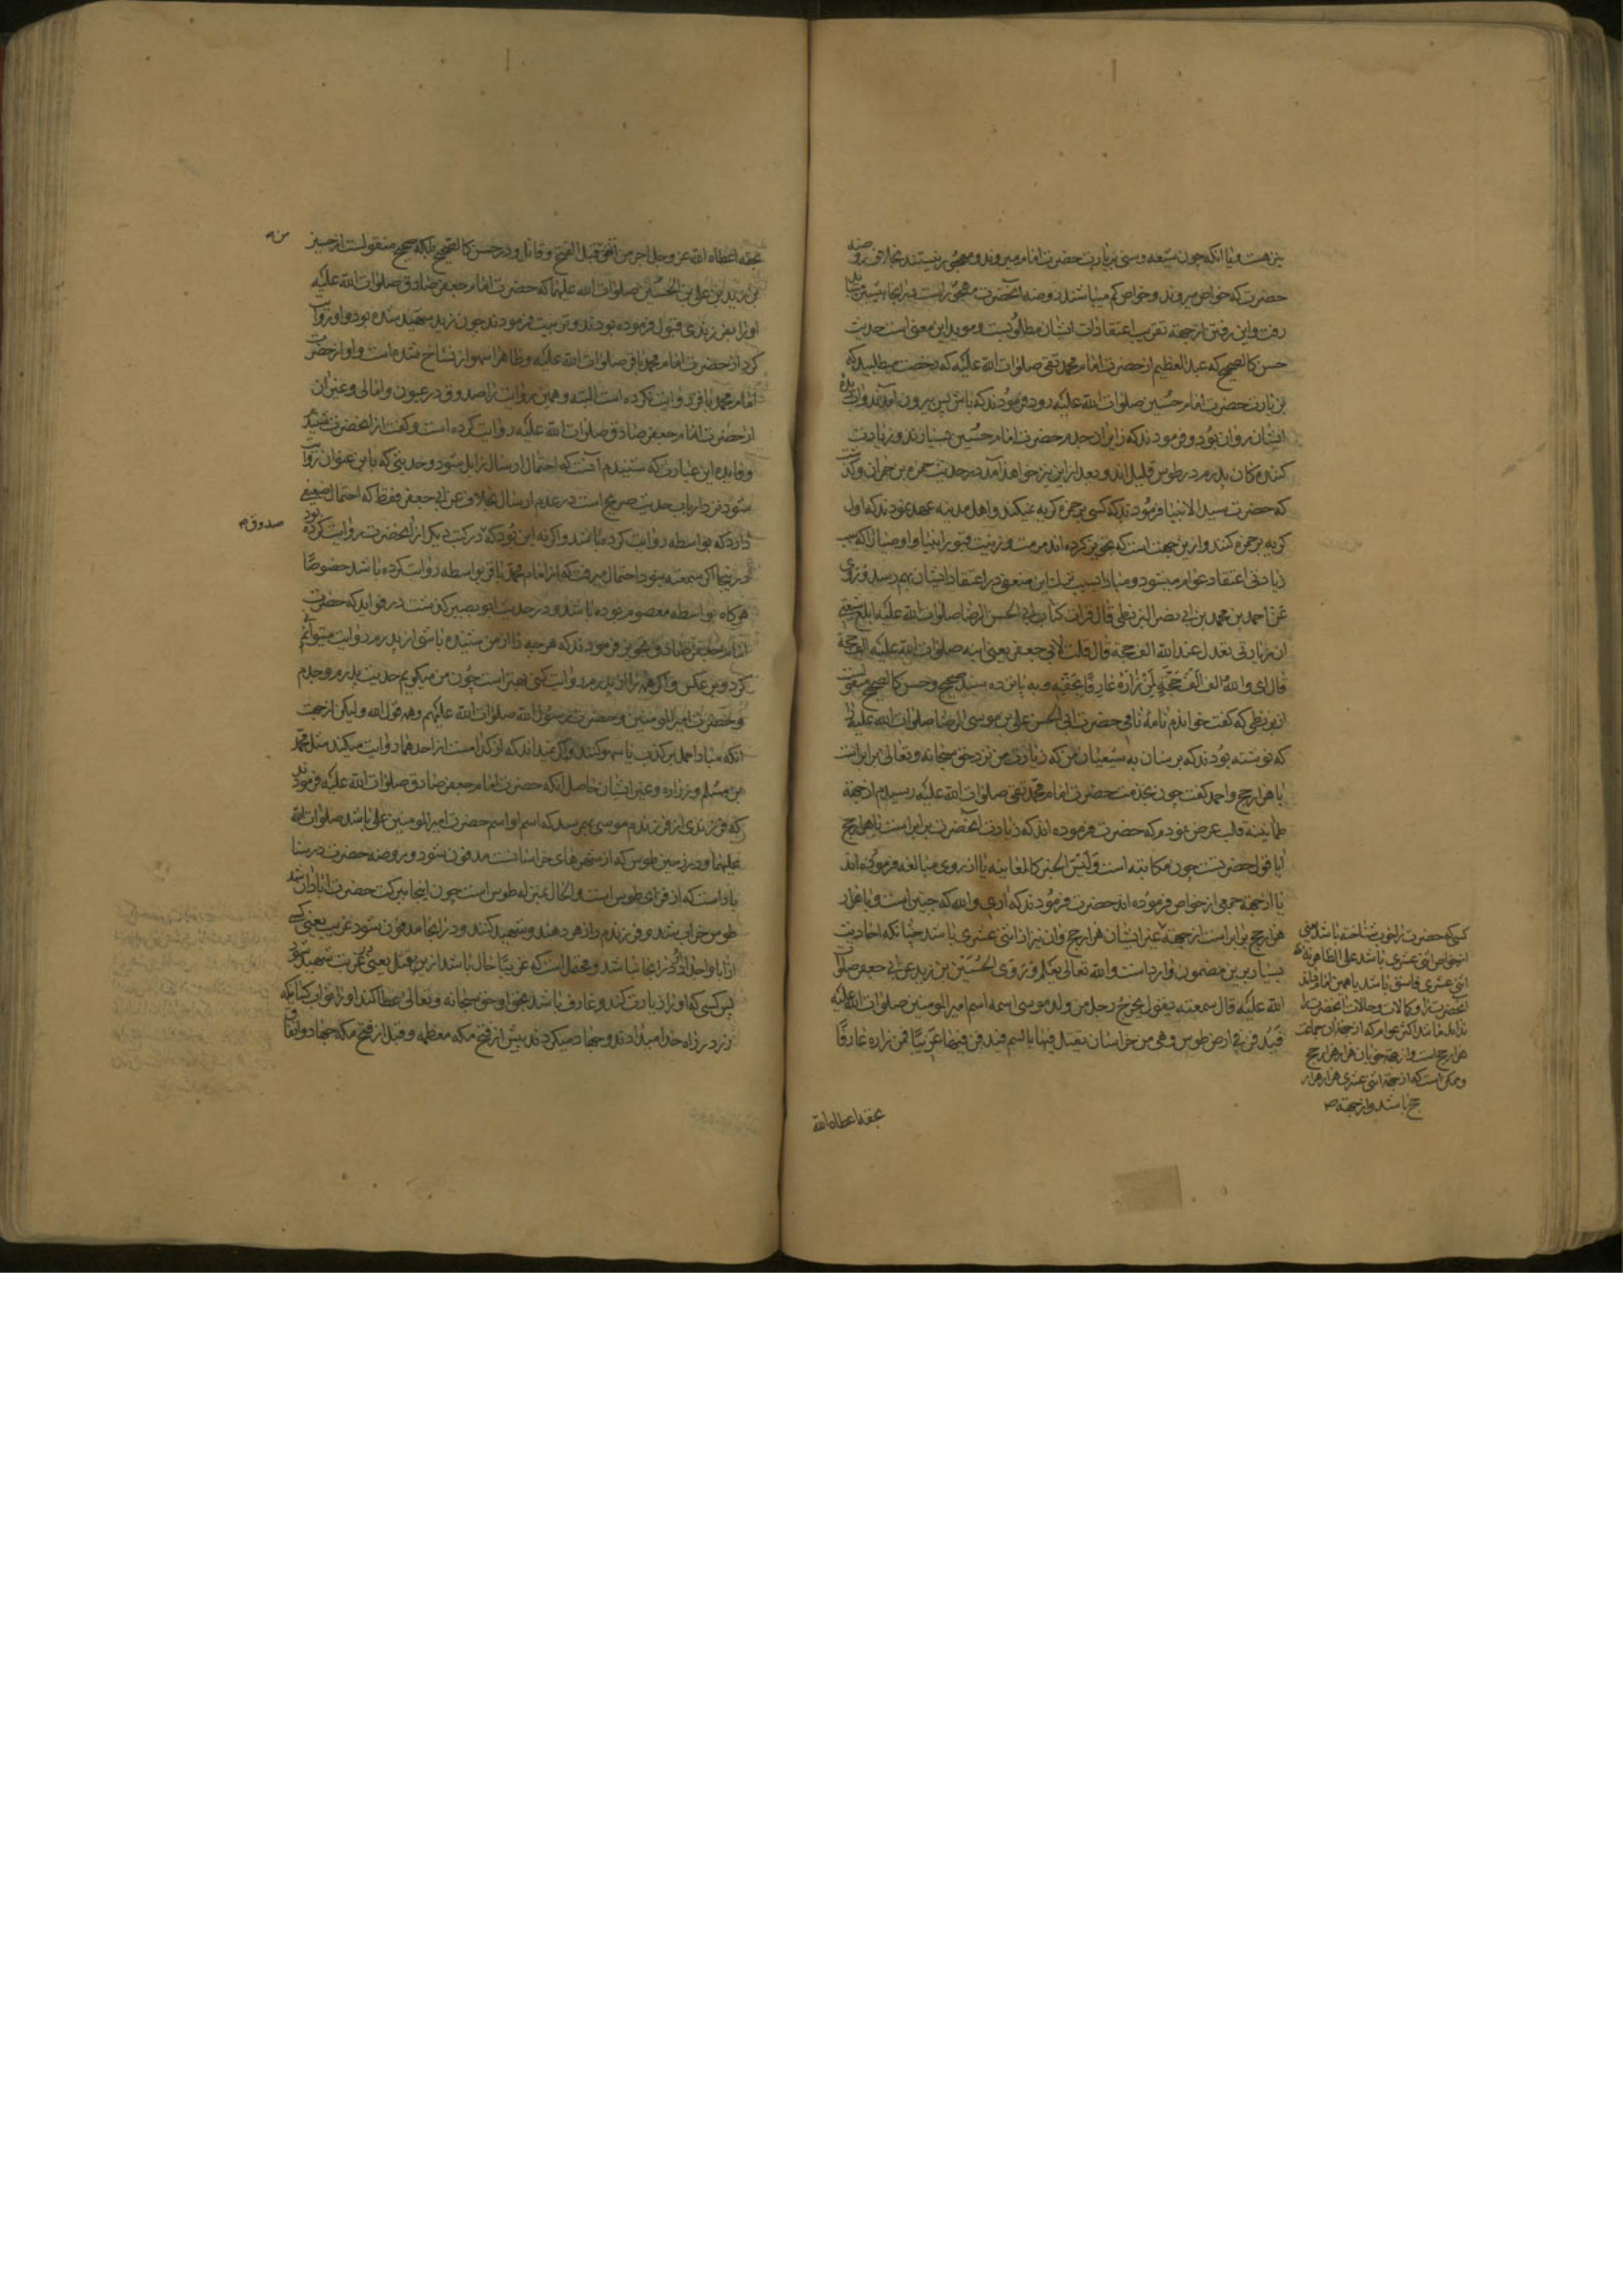 نیز هست و یا آنکه چون شیعه و سنی بزیارت حضرت امام میروند و مهجور نیستند بخلاف روضه
حضرت که خواص میروند و خواص کم میباشند روضه آنحضرت مهجور است پس آنجا بیشتر باید
رفت و این رفتن از جهة تقریب اعتقادات ایشان مطلوبست و موید این معنی است حدیث
حسن کالصحیح که عبد العظیم از حضرت امام محمد تقی صلوات الله علیه که رخصت میطلبید که
بزیارت حضرت امام حسین صلوات الله علیه رود فرمودند که باش پس بیرون آمدند و آب دیده
ایشان روان بود و فرمودند که زایران جدم حضرت امام حسین بسیارند و زیارت
کننده کان پدرم در طوس قلیل اند و بعد از این نیز خواهد آمد در حدیث حمزه بن حمران و گذشت
که حضرت سید الانبیا فرمودند که کسی بر حمزه گریه نمیکند و اهل مدینه عهد نمودند که اول
گریه بر حمزه کنند و از این جهت است که تجویز کرده اند مرمت و زینت قبور انبیا و اوصیا را که سبب
زیادتی اعتقاد عوام میشود و مبادا بسبب ترک این ضعفی در اعتقادات ایشان بهم رسد و روی
عن احمد بن محمد بن ابی نصر البزنطی قال قرات کتاب ابی الحسن الرضا صلوات الله علیه ابلغ شیعتی
ان زیارتی تعدل عند الله الف حجة قال قلت لابی جعفر یعنی ابنه صلوات الله علیه الف حجة
قال ای والله و الف الف حجة لمن زاره عارفا بحقه و به پانزده سند صحیح و حسن کالصحیح منقولست
از بزنطی که گفت خواندم نامه نامی حضرت ابی الحسن علی بن موسی الرضا صلوات الله علیه را
که نوشته بودند که برسان به شیعیان من که زیارت من نزد حق سبحانه و تعالی برابر است
با هزار حج و احمد گفت چون بخدمت حضرت امام محمد تقی صلوات الله علیه رسیدم از جهة
طمانینه قلب عرض نمودم که حضرت فرموده اند که زیارت آنحضرت برابر است با هزار حج
ایا قول حضرتست چون مکاتبه است و لیس الخبر کالمعاینه یا از روی مبالغه فرموده اند
یا از جهة جمعی از خواص فرموده اند حضرت فرمودند که اری والله که چنین است و با هزار
هزار حج برابر است از جهة غیر ایشان هزار حج و ان نیز از اثنی عشری باشد چنانکه احادیث
بسیار برین مضمون وارد است والله تعالی یعلم و روی الحسین بن زید عن ابی جعفر صلوات
الله علیه قال سمعته یقول یخرج رجل من ولد موسی اسمه اسم امیر المومنین صلوات الله علیه
فیدفن فی ارض طوس و هی من خراسان یقتل فیها بالسم فیدفن فیها غریبا فمن زاره عارفا
کسی که حضرت را خوب شناخته باشد یعنی
از خواص اثنی عشری باشد علی الظاهر نه آنکه
اثنی عشری فاسق باشد یا همین امام داند
آنحضرت را و کمالات و حالات آنحضرت را
نداند مانند اکثر عوام که از جهة آن جماعت
هزار حج است و از جهة خوبان هزار هزار حج
و ممکن است که از جهة اثنی عشری هزار هزار
حج باشد و از جهة صح
بحقه اعطاه الله
بحقه اعطاه الله عز و جل اجر من انفق قبل الفتح و قاتل و در حسن کالصحیح بلکه صحیح منقولست از حسین
بن زید بن علی بن الحسین صلوات الله علیهما که حضرت امام جعفر صادق صلوات الله علیه
او را بفرزندی قبول فرموده بودند و تربیت فرمودند چون زید شهید شده بود و او روایت
کرد از حضرت امام محمد باقر صلوات الله علیه و ظاهرا سهو از نساخ شده است و او از حضرت
امام محمد باقر روایت نکرده است البته و همین روایت را صدوق در عیون و امالی و غیر ان
از حضرت امام جعفر صادق صلوات الله علیه روایت کرده است و گفت از آنحضرت شنیدم
و فایده این عبارت که شنیدم آنست که احتمال ارسال زایل شود و حدیثی که باین عنوان روایت
شود نزد ارباب حدیث صریح است در عدم ارسال بخلاف عن ابی جعفر فقط که احتمال ضعیفی
دارد که بواسطه روایت کرده باشد و اگر نه این بود که در کتب دیگر از آنحضرت روایت کرده بود
در اینجا اگر سمعته نبود احتمال میرفت که از امام محمد باقر بواسطه روایت کرده باشد خصوصا
هرگاه بواسطه معصوم بوده باشد و در حدیث ابو بصیر گذشت در فواید که حضرت
امام جعفر صادق تجویز فرمودند که هر چه را از من شنیده باشی از پدرم روایت میتوانی
کرد و بر عکس و اگر همه را از پدرم روایت کنی بهتر است چون من میگویم حدیث پدرم و جدم
و حضرت امیر المومنین و حضرت رسول الله صلوات الله علیهم و همه قول الله و لیکن از جهت
آنکه مبادا حمل بر کذب یا سهو کنند و اگر نمیداند که از کدامست از احدهما روایت میکند مثل محمد
بن مسلم و زراره و غیر ایشان حاصل آنکه حضرت امام جعفر صادق صلوات الله علیه فرمودند
که فرزندی از فرزندم موسی بهم رسد که اسم او اسم حضرت امیر المومنین علی باشد صلوات الله
علیهما و در زمین طوس که از شهرهای خراسانست مدفون شود و روضه حضرت در سنا
باد است که از قرای طوس است و الحال بمنزله طوس است چون اینجا ببرکت حضرت ابادان شد
طوس خراب شد و فرزندم را زهر دهند و شهید کنند و در انجا مدفون شود غریب یعنی کسی
از ابا و اجداد او در انجا نباشد و محتمل است که غریبا حال باشد از یقتل یعنی در غربت شهید شود
پس کسی که او را زیارت کند و عارف باشد بحق او حق سبحانه و تعالی عطا کند او را ثواب کسانیکه
زر در راه خدا میدادند و جهاد میکردند پیش از فتح مکه معظمه و قبل از فتح مکه جهاد و انفاق
من صح
صدوق صح